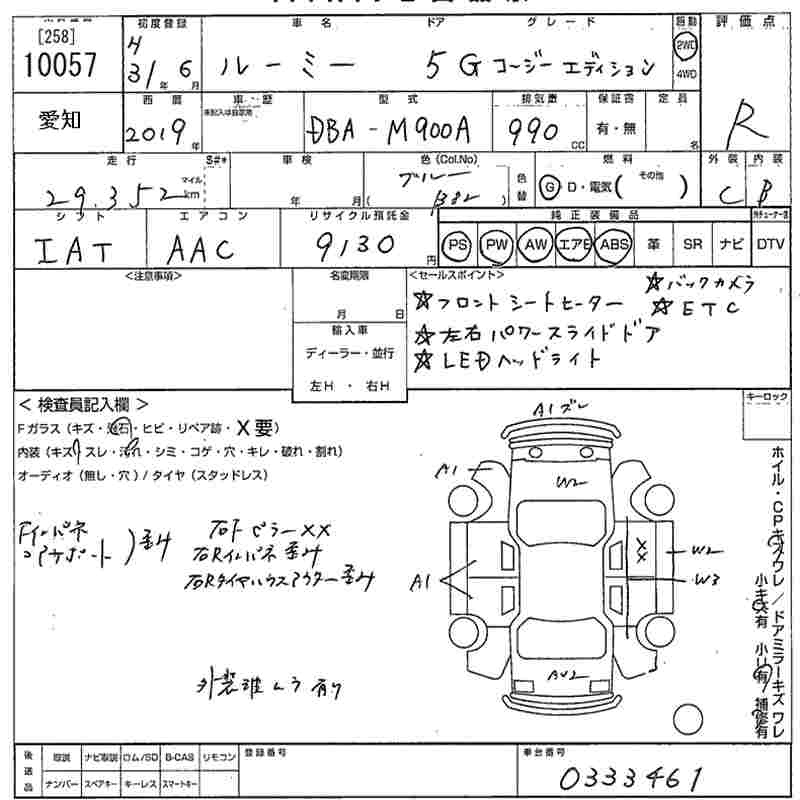 [258]
10057
初度登録
4
31年 6月
車名 ドア グレード
ルーミー 5 G コージーエディション
駆動
2WD
4WD
評価点
R
愛知
西暦
2019年
車歴
未記入は自家用
型式
DBA-M900A
排気量
990 CC
保証書
有・無
定員
名
走行
29,352
マイル
km
S#*
車検
年 月
色(Col.No)
ブルー
( B82 )
色替
燃料
G D・電気( その他 )
外装
C
内装
B
シフト
IAT
エアコン
AAC
リサイクル預託金
9130円
純正装備品
PS PW AW エアB ABS 革 SR ナビ
DTV
<注意事項>
名変期限
月 日
輸入車
ディーラー・並行
左H ・ 右H
<セールスポイント>
☆フロントシートヒーター ☆バックカメラ
☆左右パワースライドドア ☆ETC
☆LEDヘッドライト
キーロック
< 検査員記入欄 >
Fガラス(キズ・飛石・ヒビ・リペア跡・X要)
内装(キズ・スレ・汚れ・シミ・コゲ・穴・キレ・破れ・割れ)
オーディオ(無し・穴)/タイヤ(スタッドレス)
Fインパネ
コアサポート )歪み
右Fピラー XX
右Rインパネ 歪み
右Rタイヤハウスアウター歪み
外装 ムラ有り
A1 ズレ
A1
W2
XX
W2
W3
A1
AU2
ホイル・CPキズワレ/ドアミラーキズワレ
小キズ有 小凹有 補修有
後送品
取説 ナビ取説 ロム/SD B-CAS リモコン
ナンバー スペアキー キーレス スマートキー
登録番号
車台番号
0333461